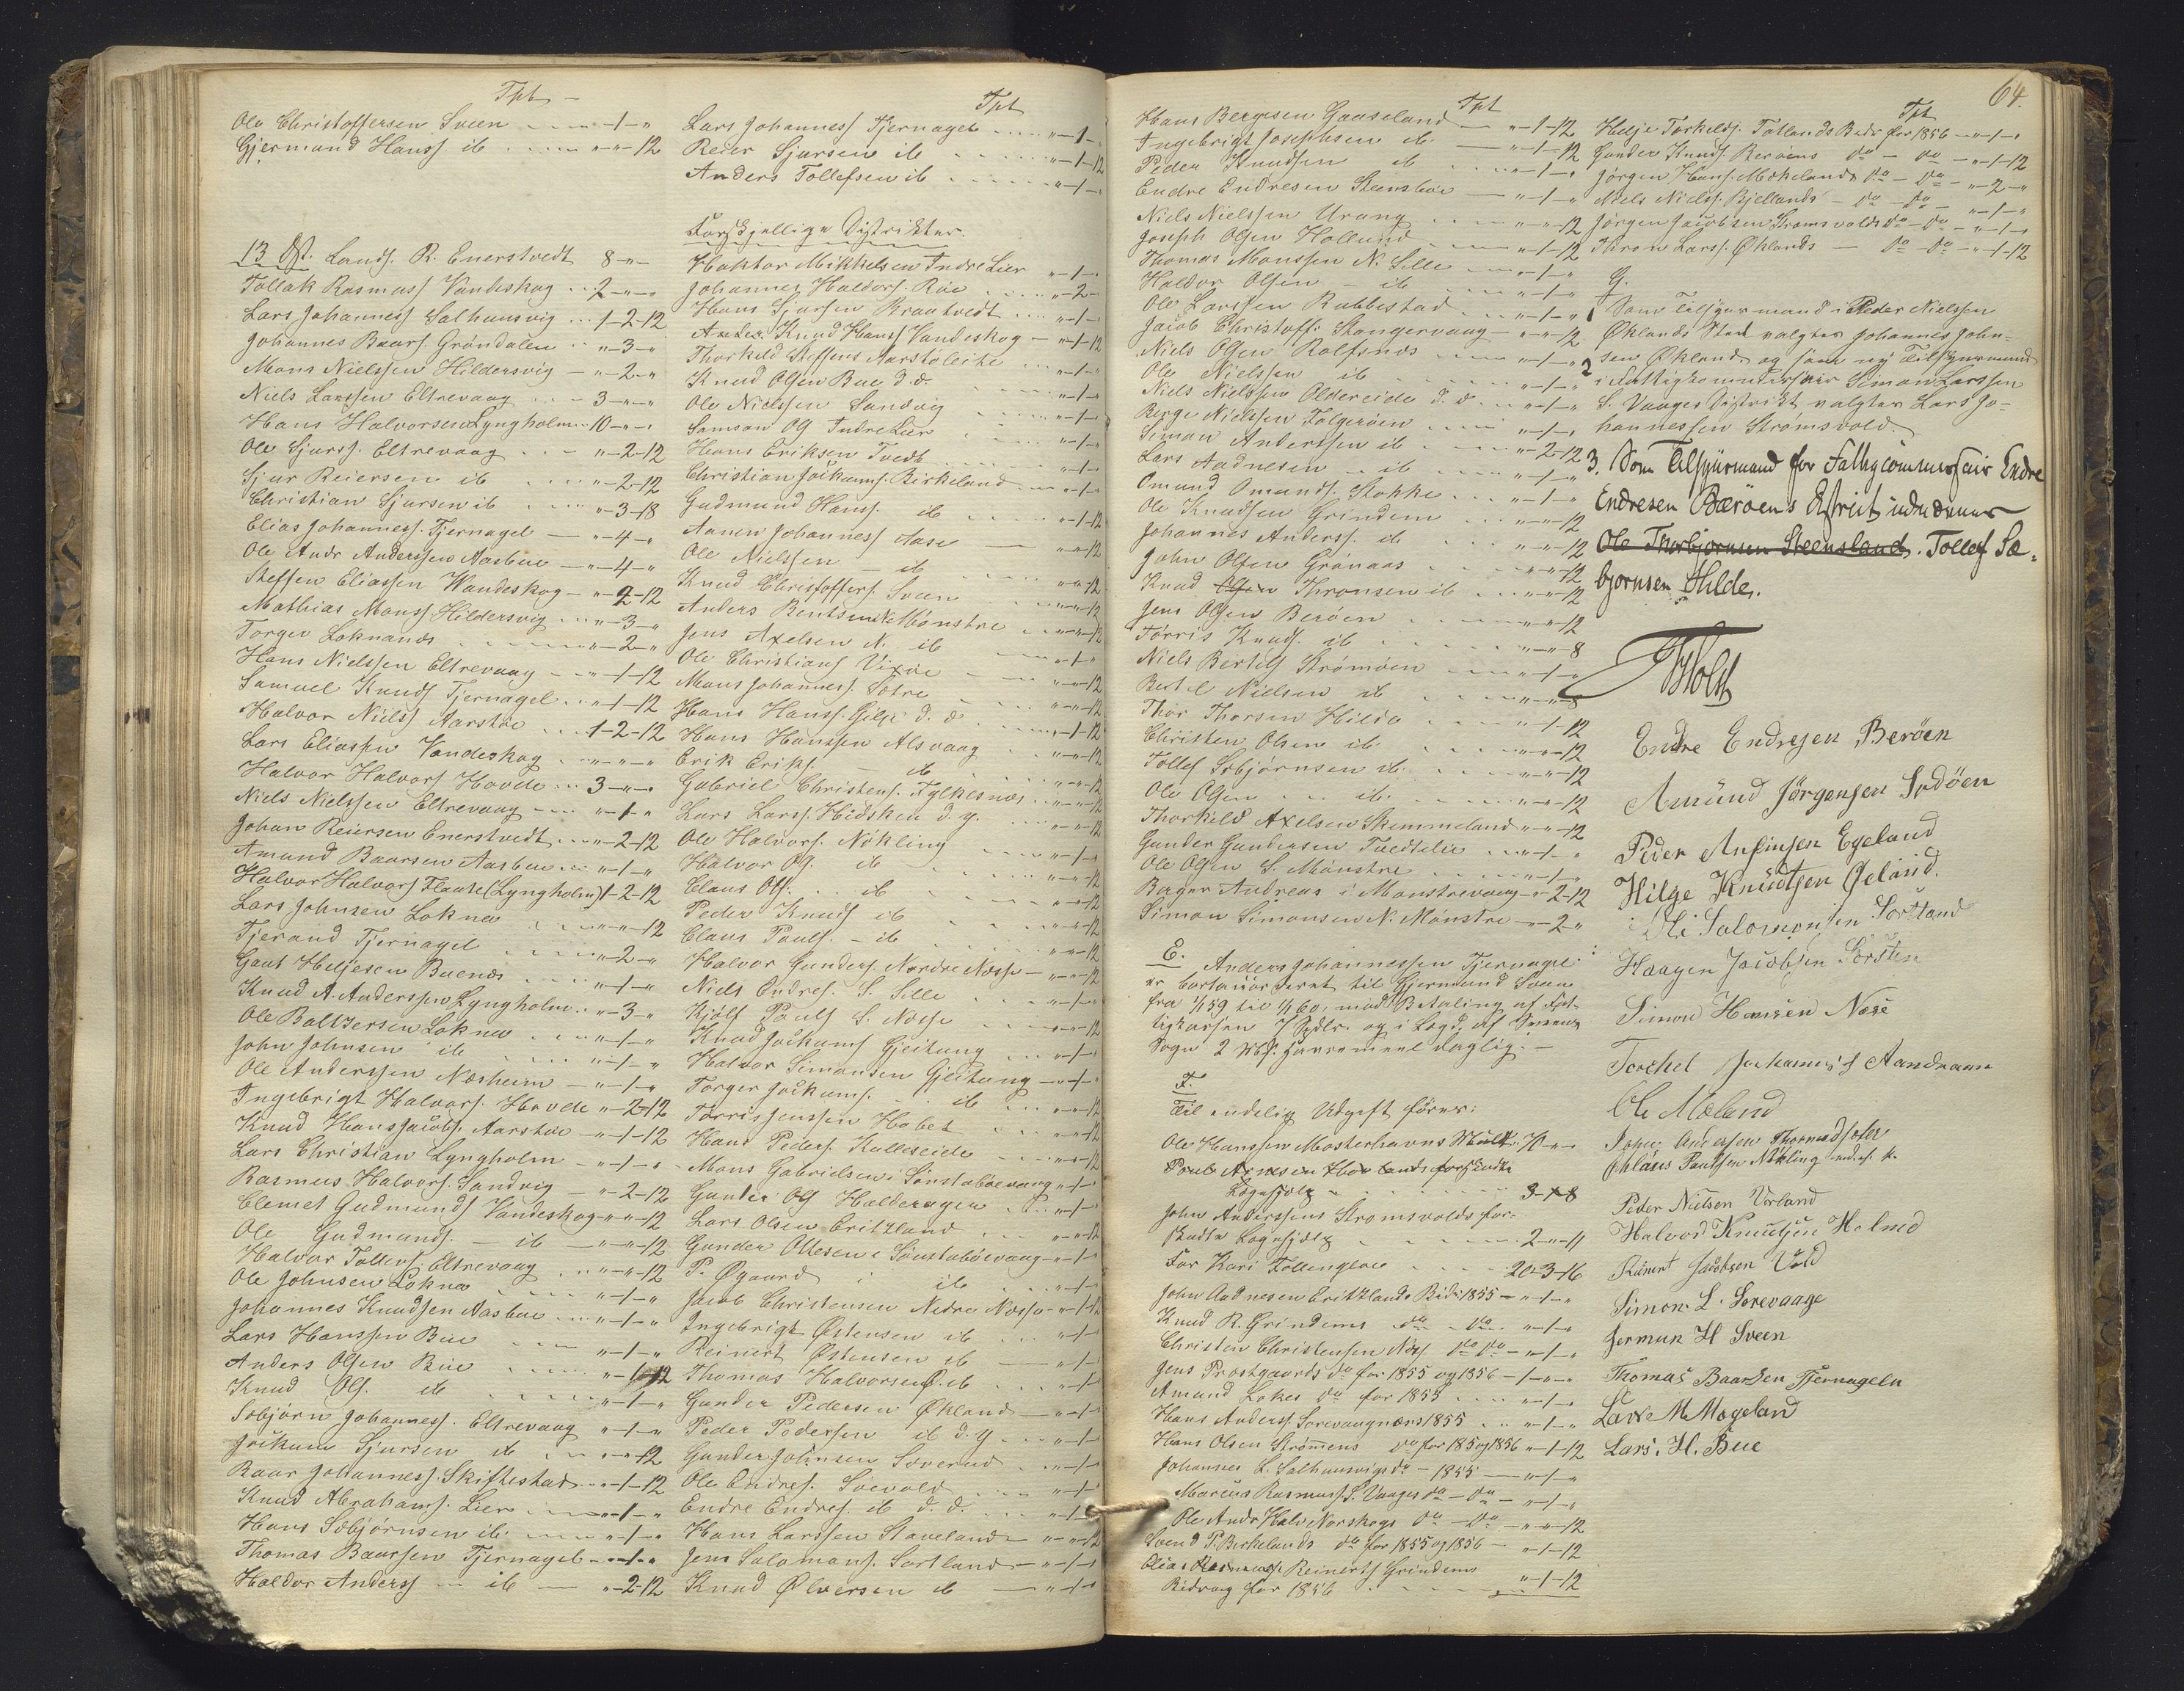 Tpt
Ole Christoffersen Sveen - 1 - "
Gjermund Hanss. ib " - " - 12
13 Dst. Lands. R. Enerstvedt 8 - " -
Tollak Rasmuss Vandeskog 2 - " - "
Lars Johanness Salhuusvig 1 - 2 - 12
Johannes Baars. Grøndalen " - 3 - "
Mons Nielssen Hildersvig " - 2 - "
Niels Larssen Eltrevaag 3 - " - "
Hans Halvorsen Lyngholm 10 - " - "
Ole Sjurss. Eltrevaag " - 2 - 12
Sjur Reiersen ib " - 2 - 12
Christian Sjursen ib " - 3 - 18
Elias Johanness. Tjernagel " - 4 - "
Ole Andr Anderssen Aasbue " - 4 - "
Steffen Eliassen Wandeskog " - 2 - 12
Mathias Monss. Hildersvig " - 3 - "
Torger Loknanes " - 2 - "
Hans Nielssen Eltrevaag " - 1 - 12
Samuel Knuds Tjernagel " - 1 - 12
Halvor Nielss Aarstøe 1 - 2 - 12
Lars Eliassen Vandeskog " - " - "
Halvor Halvors Hovde 3 - " - "
Niels Nielssen Eltrevaag " - 1 - "
Johan Reiersen Enerstvedt " - 2 - 12
Amund Baarsen Aasbue " - 1 - "
Halvor Halvors Flaate (Lyngholm) 1 - 2 - 12
Lars Johnsen Lokna " - " - 12
Tjerand Tjernagel " - 2 - "
Gaut Heljesen Buenæs " - 1 - "
Knud A. Anderssen Lyngholm " - 3 - "
Ole Baltzersen Lokna " - 1 - "
John Johnsen ib " - 1 - "
Ole Anderssen Næsheim " - 1 - "
Ingebrigt Halvors. Hovde " - 2 - 12
Knud Hansjacobs. Aarstøe " - 1 - 12
Lars Christian Lyngholm " - 1 - "
Rasmus Halvors. Sandvig " - 2 - 12
Clemet Gudmunds Vandeskog " - " - 12
Ole Gudmunds. ib " - " - 12
Halvor Tollefs. Eltrevaag " - " - 12
Ole Johnsen Lokna " - 1 - "
Johannes Knudsen Aasbue " - 1 - "
Lars Hanssen Bue " - 1 - "
Anders Olsen Bue " - 1 - 12
Knud Ols. ib " - 1 - "
Sobjørn Johanness. Eltrevaag " - 1 - "
Jockum Sjursen ib " - " - 12
Baar Johanness. Skiftestad " - 1 - 12
Knud Abrahams. Lier " - 1 - "
Hans Sobjørnsen ib. " - 1 - "
Thomas Baarsen Tjernagel " - 1 - "
Haldor Anderss ib " - 2 - 12
Tpt
Lars Johanness Tjernagel " - 1 - "
Reier Sjursen ib " - 1 - 12
Anders Tollefsen ib " - 1 - "
Forskjellige Distrikter.
Haktor Mikkelsen Indre Lier " - 1 - "
Johannes Haldors. Røe " - 2 - "
Hans Sjursen Brautvedt " - 1 - "
Knud Hanss Vandeskog " - 1 - 12
Thorkild Steffens Aarstøleite " - 1 - "
Knud Olsen Bue d. æ. " - 1 - "
Ole Nielssen Sandvig " - 1 - "
Samson Ols Indre Lier " - 1 - "
Hans Eriksen Tvedt " - 1 - "
Christian Jockums. Birkeland " - 1 - "
Gudmund Hanss. ib " - 1 - 12
Aanen Johanness Aase " - " - 12
Ole Nielssen ib " - " - 12
Knud Christoffers. Sveen " - " - 12
Anders Bentsen N. Mønstre " - " - 12
Jens Axelsen N. ib " - 1 - "
Ole Christians Vixøe " - " - 12
Mons Johanness. Sætre " - " - 12
Hans Hanss. Gilje d. æ. " - 1 - 12
Hans Hanssen Alsvaag " - " - 12
Erik Eriks. ib " - " - 12
Gabriel Christens. Fylkesnæs " - " - 12
Lars Larss. Hidsken d. y. " - " - 12
Ole Halvors. Nøkling " - 1 - "
Halvor Ols. ib " - " - 12
Claus Ols. ib " - " - 12
Peder Knuds ib " - " - 12
Claus Pouls. ib " - " - 12
Halvor Gunders. Nordre Næsse " - " - 12
Niels Endres. S. Selle " - 1 - "
Kjølf Pouls S. Næsse " - " - 12
Knud Jockums Gjeitung " - 1 - "
Halvor Simonsen Gjeitung " - 1 - "
Torger Jockums. ib " - " - 12
Tørris Jenssen Habet " - " - 12
Hans Peders. Kulleseide " - " - 12
Mons Gabrielsen i Sønstabøevaag " - 1 - "
Gunder Ols Halderagen " - 1 - "
Lars Olsen Eritzland " - " - 12
Gunder Ottesen i Sønstabøevaag " - 1 - "
P. Øgaard i ib " - 1 - "
Jacob Christensen Nedre Næsse " - 1 - 12
Ingebrigt Østensen ib " - 1 -
Reinert Østensen ib " - 1 -
Thomas Halvorsen Ø. ib " - 1 -
Gunder Pedersen Økland " - 1 -
Peder Pedersen ib d. y. " - 1 -
Gunder Johnsen Soverud " - 1 -
Ole Endres. Loevold " - 1 -
Endre Endres. ib d. d. " - 1 -
Hans Larssen Staveland " - " - 12
Jens Salomons. Sortland " - 1 -
Knud Ølversen ib " - 1 -
64.
Tpt
Hans Bergesen Gaaseland " - 1 - 12
Ingebrigt Josephsen ib " - 1 - 12
Peder Knudsen ib " - 1 - "
Endre Endresen Steensbøe " - 1 - "
Niels Nielssen Urang " - " - 12
Joseph Olsen Hollund " - 1 - 12
Thomas Monssen N. Selle " - 1 - "
Haldor Olsen ib " - 1 - "
Ole Larssen Rabbestad " - 1 - "
Jacob Christoff. Stangervaag " - " - 12
Niels Olsen Rolfsnæs " - 1 - "
Ole Nielssen ib " - 1 - "
Niels Nielssen Oldereide d. æ. " - 1 - "
Berge Nielssen Folgerøen " - 1 - "
Simon Anderssen ib " - 2 - 12
Lars Aadnesen ib " - 1 - "
Omund Omunds. Stokke " - 1 - "
Ole Knudsen Grindem " - " - 12
Johannes Anderss. ib " - " - 12
John Olsen Grønaas " - " - 12
Knud Thronsen ib " - " - 12
Jens Olsen Berøen " - " - 12
Tørris Knuds. ib " - " - 8
Niels Bertels Strømøen " - 1 - "
Bertel Nielsen ib " - " - 8
Thor Thorsen Hilde " - 1 - 12
Christen Olsen ib. " - " - 12
Tollef Sobjørnsen ib. " - " - 12
Ole Olsen ib. " - " - 12
Thorkild Axelsen Skimmeland " - " - 12
Gunder Gundersen Tvedtelie " - 1 - "
Ole Olsen S. Mønstre " - 1 - "
Borger Andreas i Mønstrevaag " - 2 - 12
Simon Simonsen N. Mønstre " - 2 - "
E. Anders Johannessen Tjernagel
er bortaccorderet til Gjermund Sveen
fra 1/1 59 til 1/1 60, mod Betaling af Fat-
tigkassen 7 Spdlr. og i Lægd. af Sveens
Sogn 2 Mk. havremeel daglig. -
F.
Til endelig Udgift føres:
Ole Hanssen Mosterhavns Mulkt 70 - " -
Lægehjelp 3 - 48
John Anderssens Strømsvolds for-
skudte Lægehjelp 2 - " - 11
For Kari Føllingen 20 - 3 - 16
John Aadnesen Eritzlands Bidr. 1855 " - 1 - "
Knud R. Grindems do do " - 1 - "
Christen Christensen Næs do do " - 1 - "
Jens Prestgaards do for 1855 og 1856 - 1 - " - "
Amund Lokes do for 1855 " - 1 - "
Hans Anderss. Sorevaagnæs 1855 " - 1 - "
Hans Olsen Strømens do for 1855 og 1856 " - 1 - 12
Johannes L. Salhuusvigs do - 1855 " - 1 - "
Marcus Rasmuss. S. Vaages do - do " - 1 - "
Ole Andr Halv Norskogs do - do " - " - 12
Svend P. Birkelands do for 1855 og 1856 " - 1 - 12
Reinerts Grindems
Bidrag for 1856 " - 1 - 12
Tpt
Helje Torkelds. Totlands Bidr for 1856 " - 1 - "
Gunder Knuds. Berøens do - do " - 1 - 12
Jørgen Hans. Mækelands do - do " - 2 - "
Niels Nielss. Kjellands do - do " - 1 - "
Jørgen Jacobsen Strømsvolds do - do " - 1 - "
Thron Larss. Øklands do - do " - 1 - 12
G.
1 Som Tilsynsmand i Peder Nielssen
Øklands Sted valgtes Johannes John-
sen Økland og som ny Tilsynsmand
2 i Fattigkommissair Simon Larssen
S. Vaages Distrikt valgtes Lars Jo-
hannessen Strømsvold.
3. Som Tilsynsmand for Fattigcommissair Endre
Endresen Bærøens District udnævnes
Ole Thorbjørnsen Steensland. Tollef Sæ-
bjørnsen Hilde.
Endre Endresen Berøen
Amund Jørgensen Indøen
Peder Anfinsen Egeland
Hilge Knudtsen Øeland.
Ole Salomonsen Sortland
Haagen Jacobsen Sørsten
Simon Hansen Nese
Torchel Jochanns's Aandraan
Ole Mæland
Peder Nielsen Vorland
Halvord Knudtsen Holmd
Reinert Jacobsen Vold
Simon. L. Sorevaage
Jermun H Sveen
Thomas Baardsen Tjernageln
Lars M Magelan
Lars. H. Bue